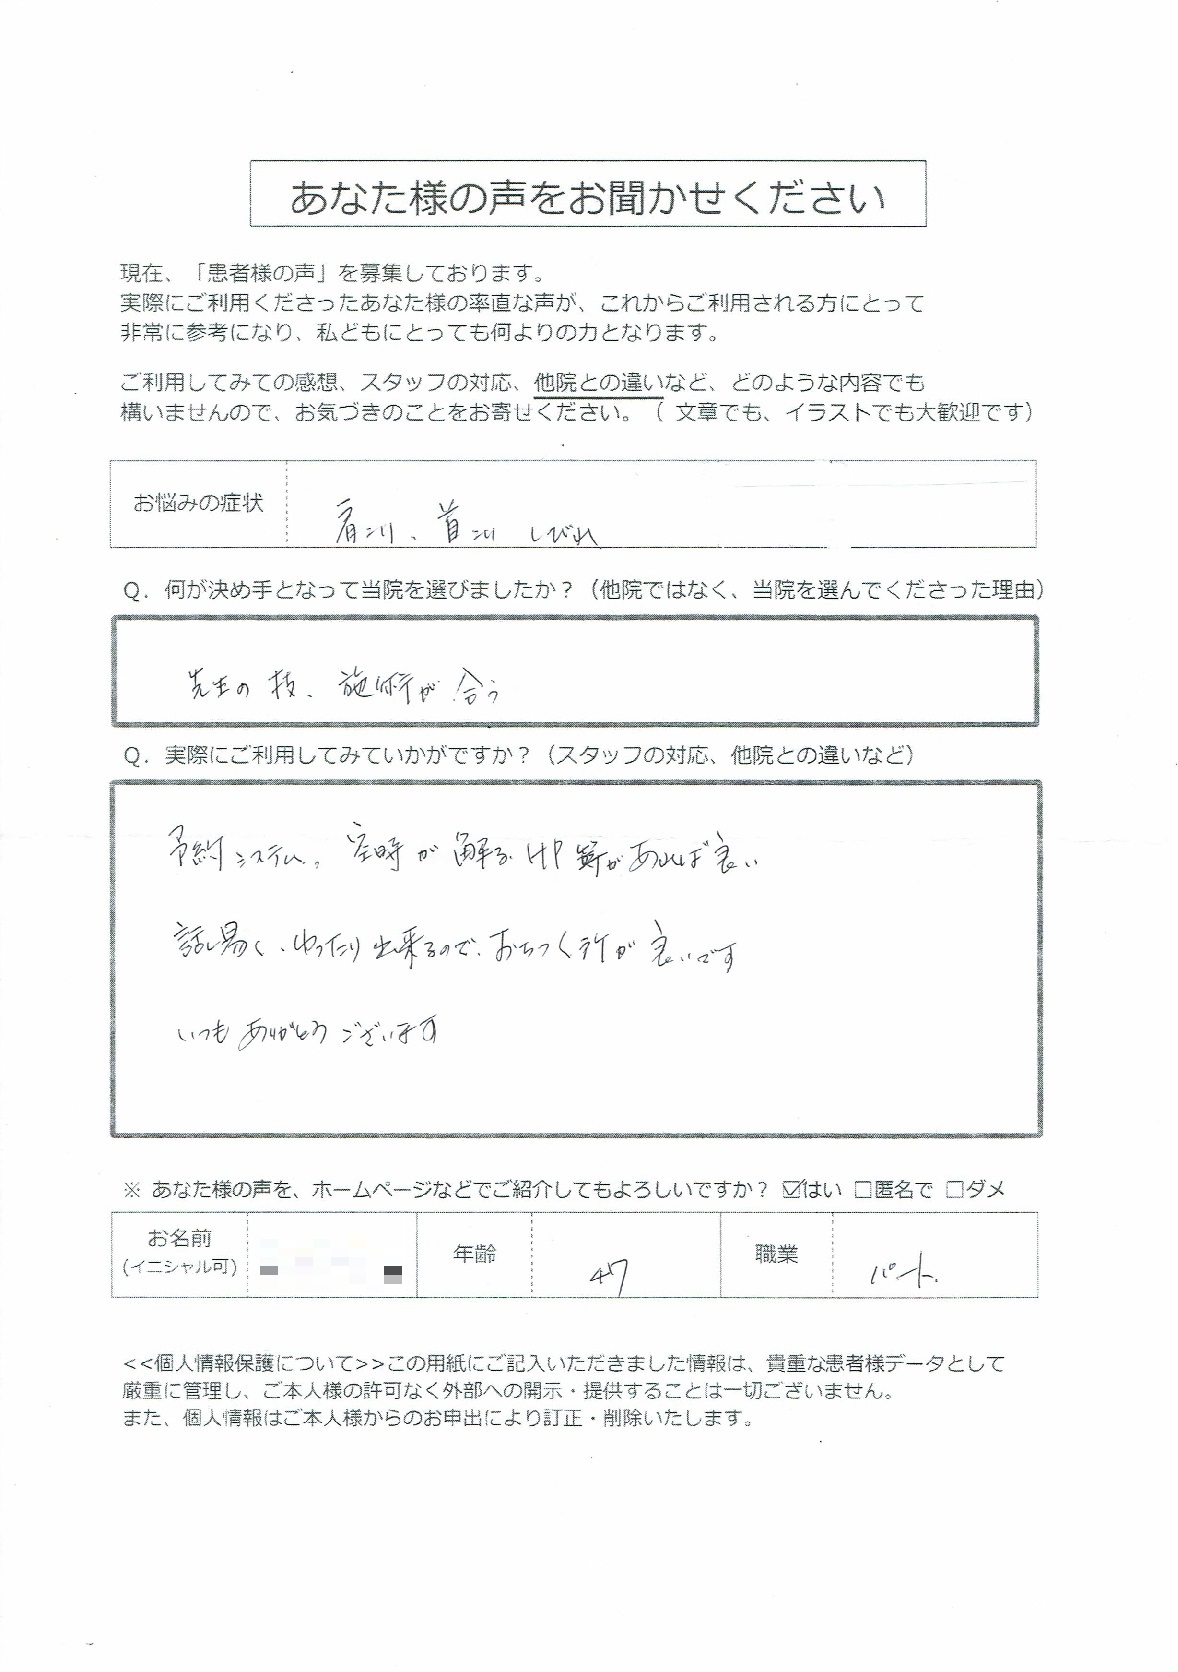 あなた様の声をお聞かせください
現在、「患者様の声」を募集しております。
実際にご利用くださったあなた様の率直な声が、これからご利用される方にとって
非常に参考になり、私どもにとっても何よりの力となります。
ご利用してみての感想、スタッフの対応、他院との違いなど、どのような内容でも
構いませんので、お気づきのことをお寄せください。（ 文章でも、イラストでも大歓迎です）
お悩みの症状
肩コリ、首コリ しびれ
Q. 何が決め手となって当院を選びましたか？（他院ではなく、当院を選んでくださった理由）
先生の技、施術が合う
Q. 実際にご利用してみていかがですか？（スタッフの対応、他院との違いなど）
予約システム、空時が解るHP等があれば良い
話し易く、ゆったり出来るので、おちつく所が良いです
いつもありがとうございます
※ あなた様の声を、ホームページなどでご紹介してもよろしいですか？ ☑はい □匿名で □ダメ
お名前
(イニシャル可)
年齢
47
職業
パート.
<<個人情報保護について>>この用紙にご記入いただきました情報は、貴重な患者様データとして
厳重に管理し、ご本人様の許可なく外部への開示・提供することは一切ございません。
また、個人情報はご本人様からのお申出により訂正・削除いたします。